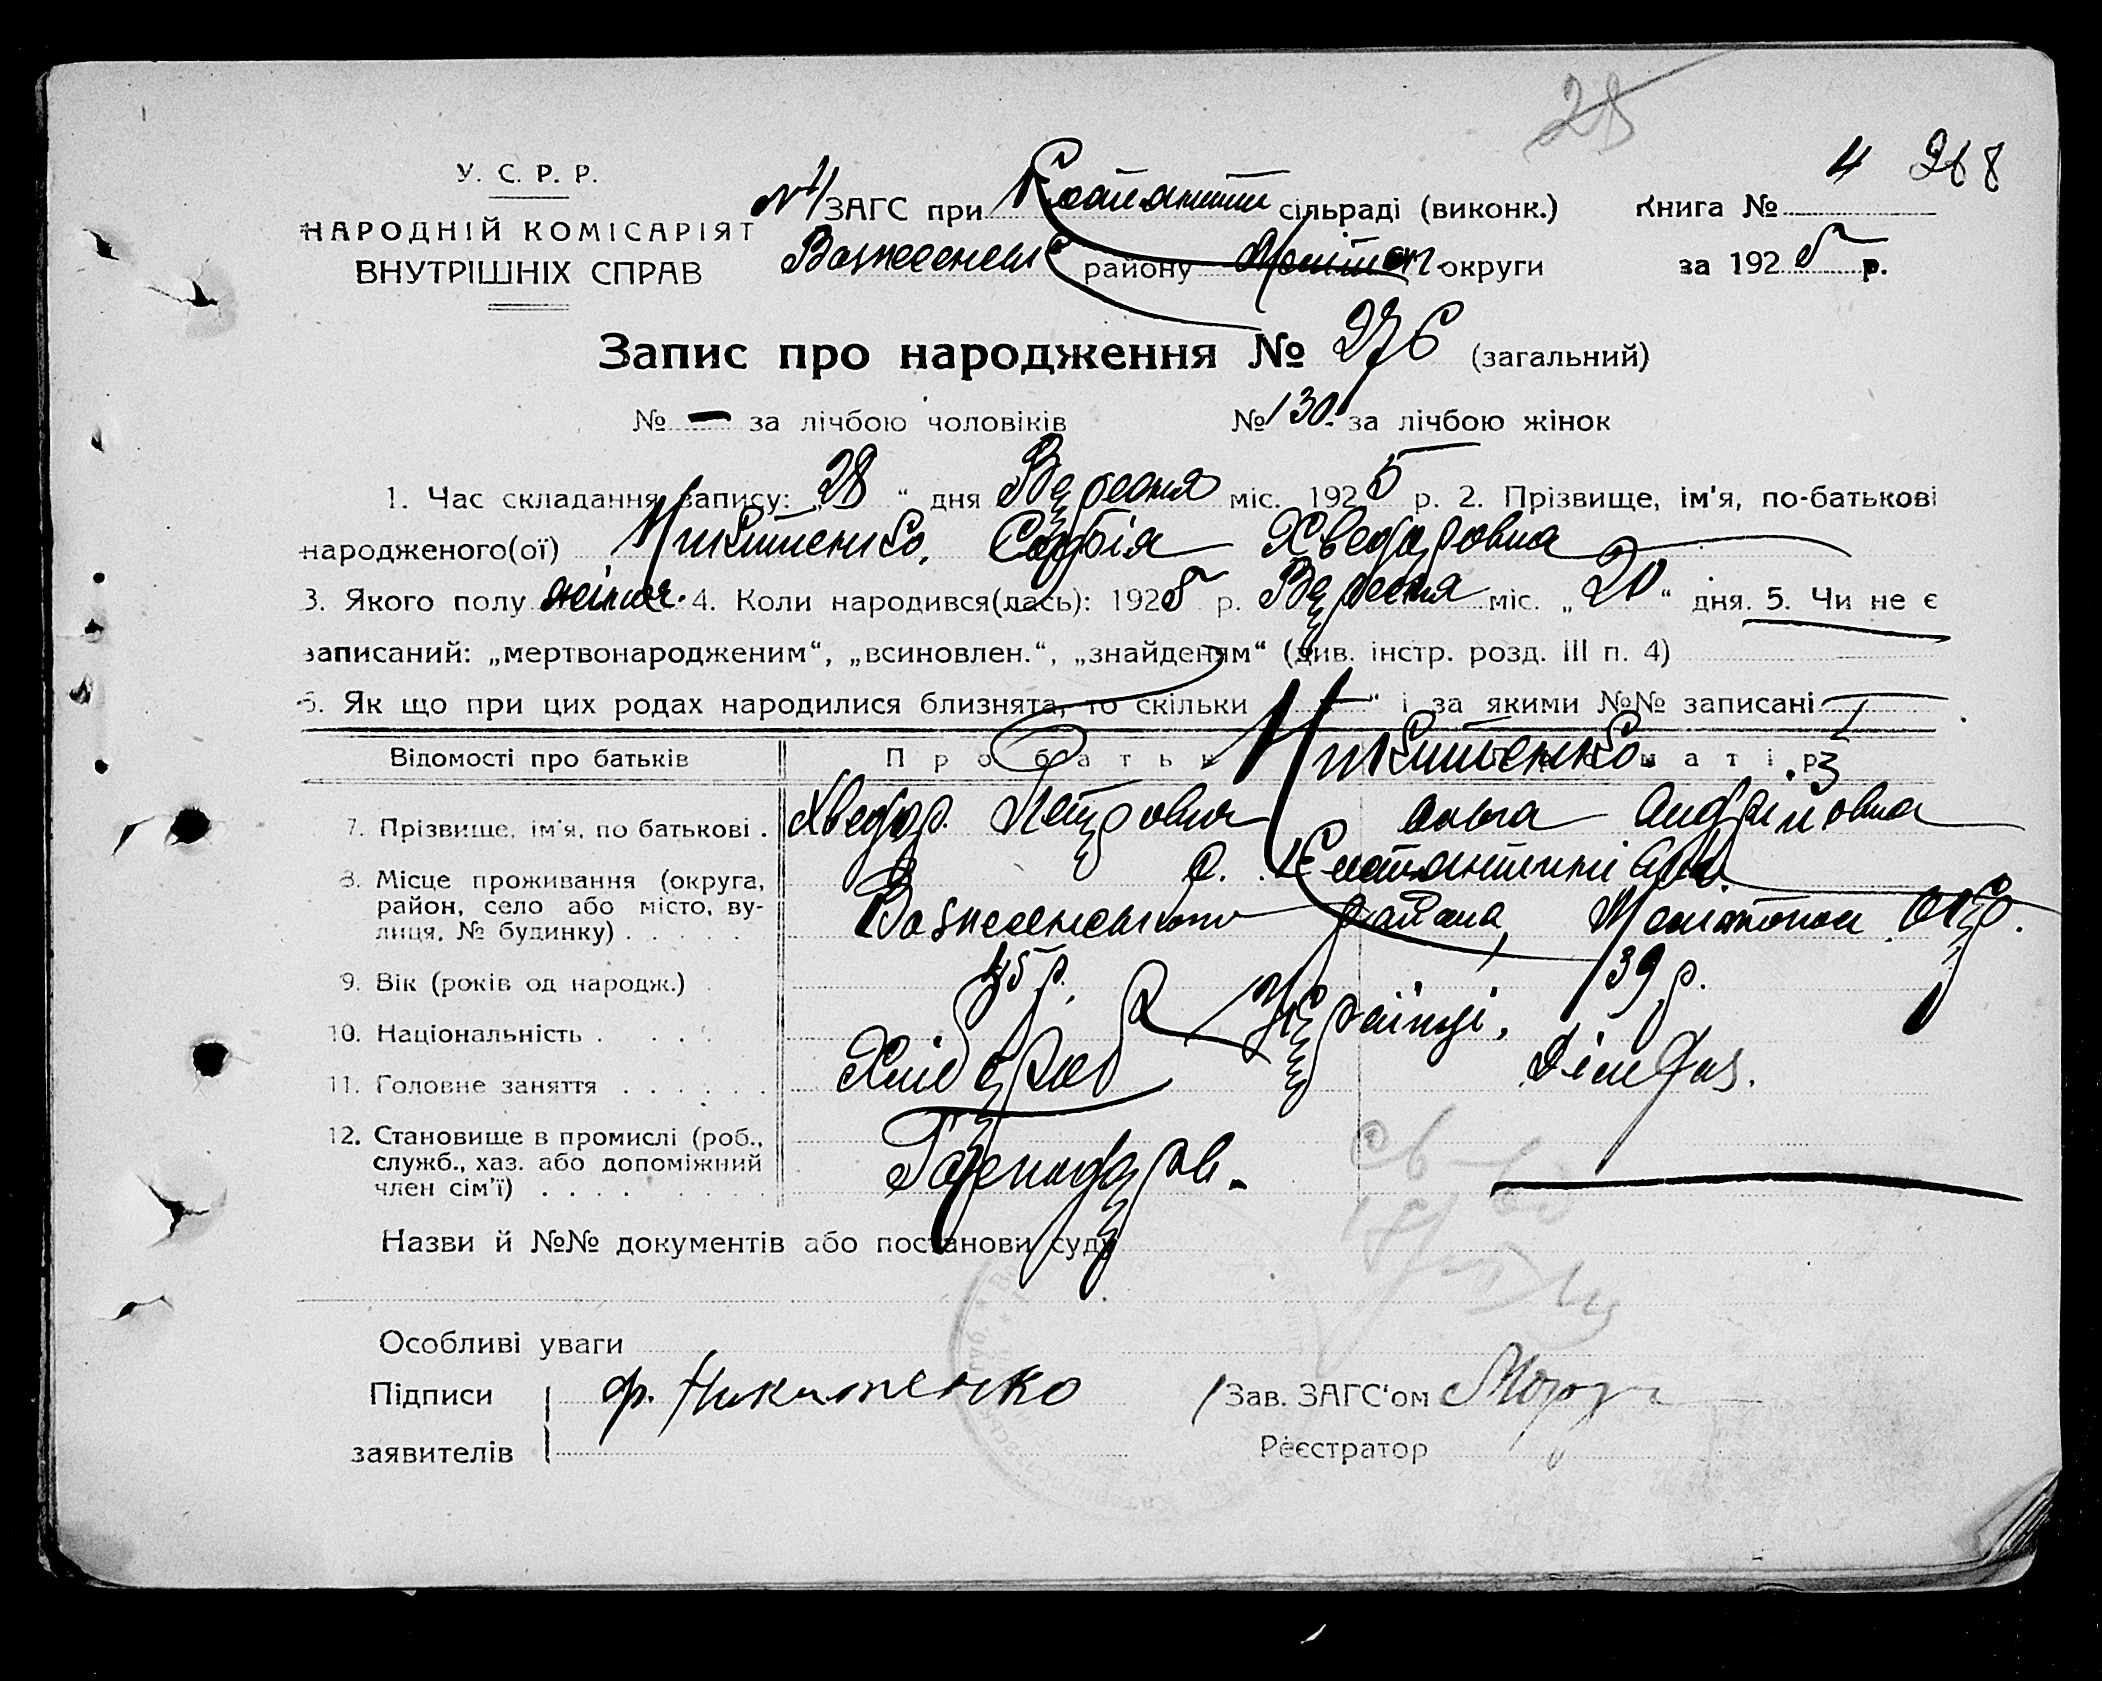 28
4 268
У. С. Р. Р.
НАРОДНІЙ КОМІСАРІЯТ
ВНУТРІШНІХ СПРАВ
ЗАГС при сільраді (виконк.) Книга №
району округи за 1925 р.
Запис про народження № 276 (загальний)
№ — за лічбою чоловіків № 130 за лічбою жінок
1. Час складання запису: „28“ дня Вересня міс. 1925 р. 2. Прізвище, ім'я, по-батькові
народженого(ої) Никитенко, Софія Хведоровна
3. Якого полу жіноч. 4. Коли народився(лась): 1925 р. Вересня міс. „20“ дня. 5. Чи не є
записаний: „мертвонародженим“, „всиновлен.“, „знайденим“ (див. інстр. розд. III п. 4)
6. Як що при цих родах народилися близнята, то скільки „—“ і за якими №№ записані —
Відомості про батьків Про батька Никитенко. матір
7. Прізвище, ім'я, по батькові . Хведор Петрович Ольга Андрійовна
8. Місце проживання (округа, с.
район, село або місто, ву- района, округ.
лиця, № будинку) . . . . .
9. Вік (років од народж.) . 45 р. 39 р.
10. Національність . . . . . Українці.
11. Головне заняття . . . . . . Хлібороб
12. Становище в промислі (роб.,
служб., хаз. або допоміжний
член сім'ї) . . . . . . . . —
Назви й №№ документів або постанови суду
Особливі уваги
Підписи Ф. Никитенко Зав. ЗАГС'ом
заявителів Реєстратор